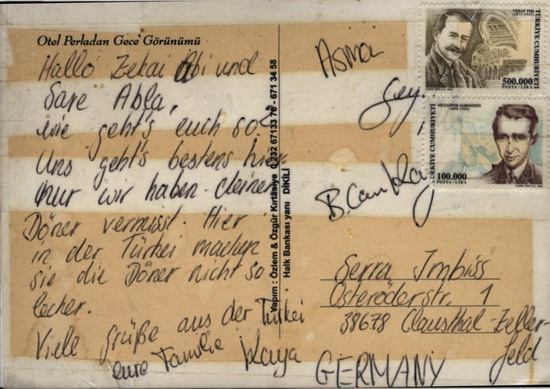 Otel Perladan Gece Görünümü
Hallo Zekai Abi und
Sare Abla,
wie geht's euch so?
Uns geht's bestens hier
nur wir haben deinen
Döner vermisst. Hier
in der Türkei machen
sie die Döner nicht so
lecker.
Viele grüße aus der Türkei
eure Familie Kaya
Yapım : Özlem & Özgür Kırtasiye 0.232 67133 76 - 671 34 58
Halk Bankası yanı DİKİLİ
Asman
TÜRKİYE CUMHURİYETİ
500.000
POSTA • LİRA
TÜRKİYE CUMHURİYETİ
100.000
POSTA • LİRA
Serra Imbiss
Osteröderstr. 1
38678 Clausthal-Zeller-
feld
GERMANY